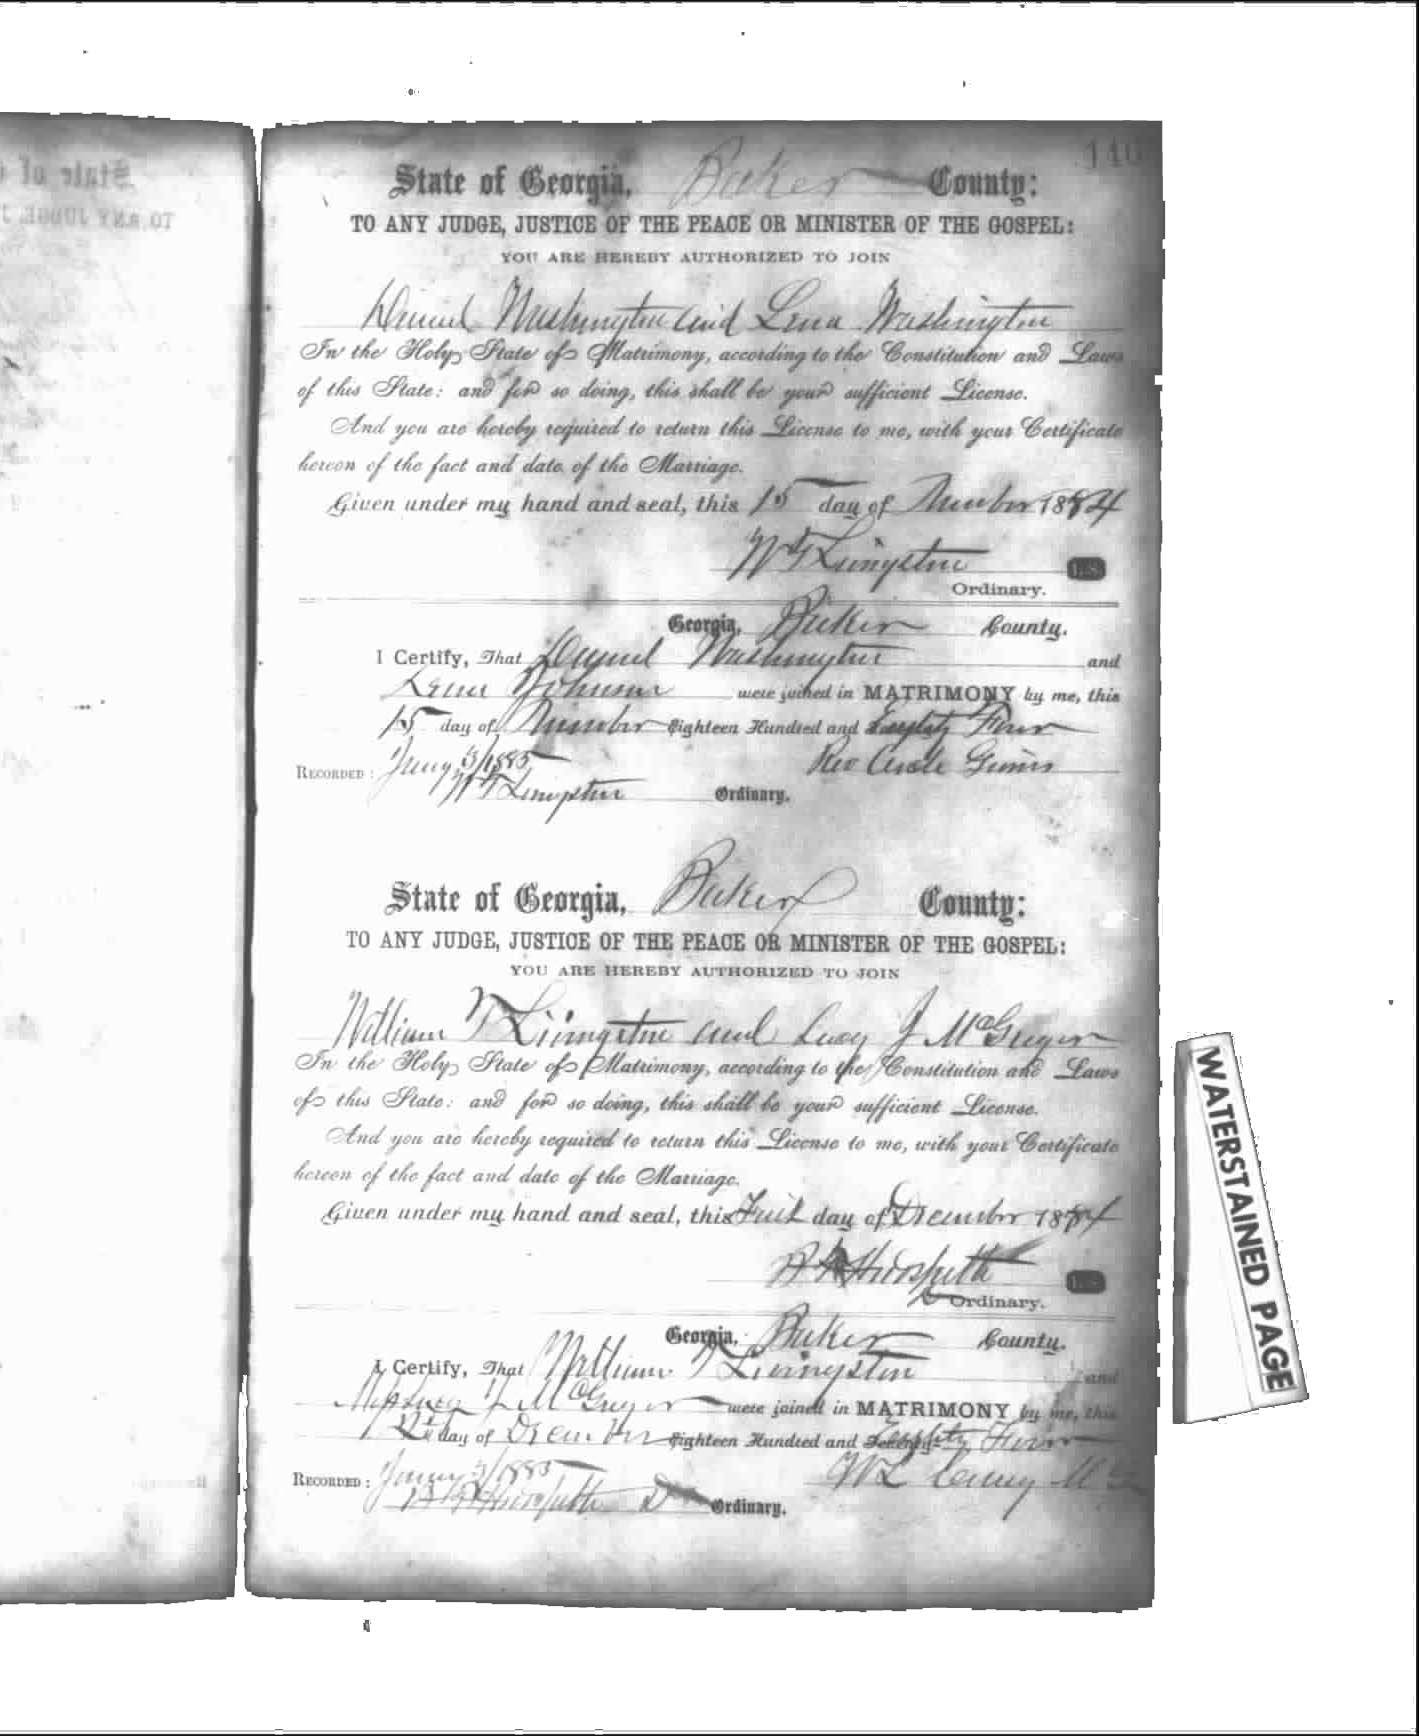 140
State of Georgia, Baker County:
TO ANY JUDGE, JUSTICE OF THE PEACE OR MINISTER OF THE GOSPEL:
YOU ARE HEREBY AUTHORIZED TO JOIN
Daniel Washington and Lena Washington
In the Holy State of Matrimony, according to the Constitution and Laws
of this State: and for so doing, this shall be your sufficient License.
And you are hereby required to return this License to me, with your Certificate
hereon of the fact and date of the Marriage.
Given under my hand and seal, this 15 day of November 1884
W T Livingston L.S.
Ordinary.
Georgia, Baker County.
I Certify, That Daniel Washington and
Lena Johnson were joined in MATRIMONY by me, this
15 day of November Eighteen Hundred and Eighty Four
Rev
RECORDED: Jany 3/1885
W T Livingston Ordinary.
State of Georgia, Baker County:
TO ANY JUDGE, JUSTICE OF THE PEACE OR MINISTER OF THE GOSPEL:
YOU ARE HEREBY AUTHORIZED TO JOIN
William T Livingston and Lucy J McGregor
In the Holy State of Matrimony, according to the Constitution and Laws
of this State: and for so doing, this shall be your sufficient License.
And you are hereby required to return this License to me, with your Certificate
hereon of the fact and date of the Marriage.
Given under my hand and seal, this First day of December 1884
Hudspeth L.S.
Ordinary.
Georgia, Baker County.
I Certify, That William T Livingston and
J McGregor were joined in MATRIMONY by me, this
day of December Eighteen Hundred and Eighty Four
W L
RECORDED: Jany 3/1885
Hudspeth D Ordinary.
WATERSTAINED PAGE